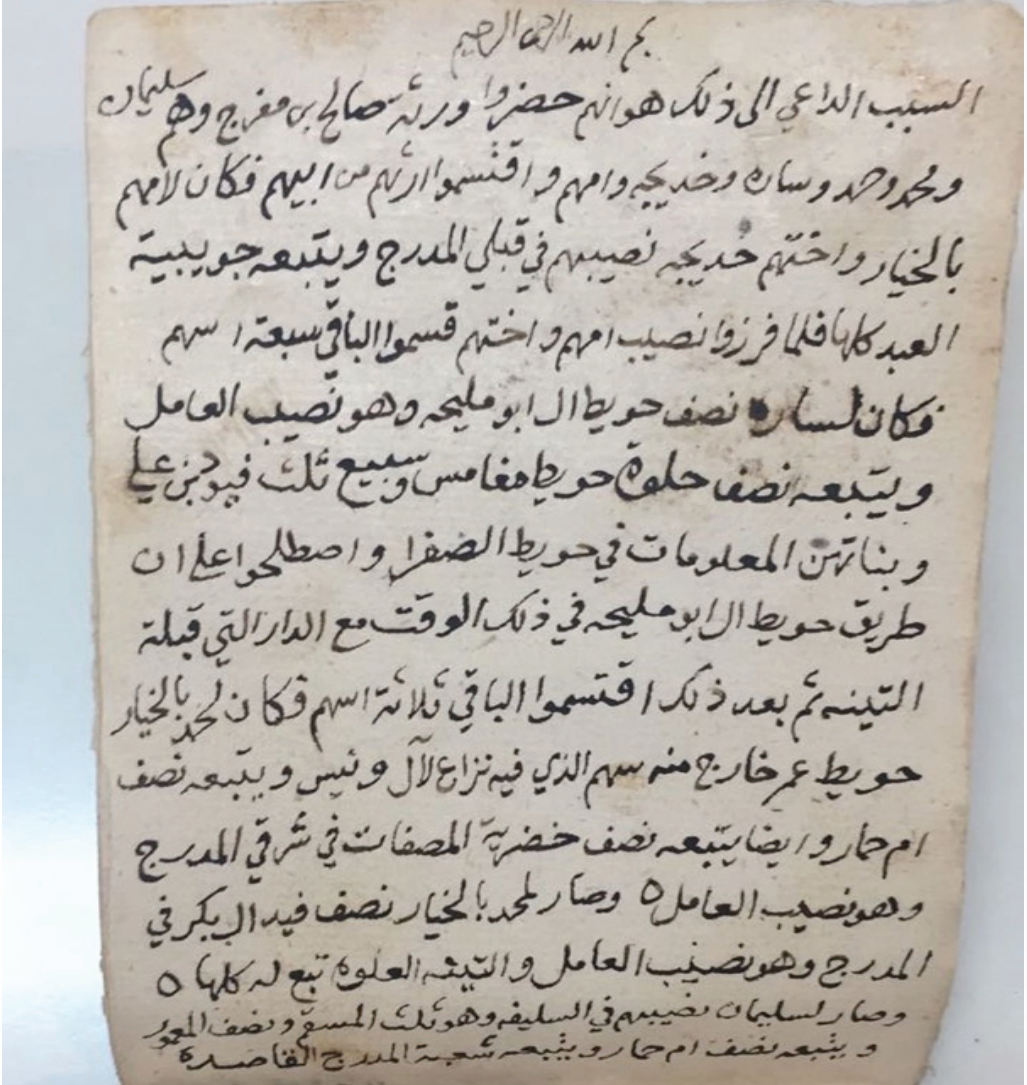 بسم الله الرحمن الرحيم
السبب الداعي الى ذلك هو انهم حضروا ورثة صالح بن مفرج وهم سليمان
ومحمد وحمد وساره وخديجه وامهم واقتسموا ارثهم من ابيهم فكان لامهم
بالخيار واختهم خديجه نصيبهم في قبلي المدرج ويتبعه جويبية
العبد كلها فلما فرزوا نصيب امهم واختهم قسموا الباقي سبعة اسهم
فكان لساره نصف حويط ال ابو مليحه وهو نصيب العامل
ويتبعه نصف حلوة حويط مغامس وسبيع ثلث فيد بن علي
وبناتهن المعلومات في حويط الضفرا واصطلحوا على ان
طريق حويط ال ابو مليحه في ذلك الوقت مع الدار التي قبلة
التينه ثم بعد ذلك اقتسموا الباقي ثلاثة اسهم فكان لحمد بالخيار
حويط عمر خارج منه سهم الذي فيه نزاع لآل ونيس ويتبعه نصف
ام حمار وايضا يتبعه نصف خضرية المصفات في شرقي المدرج
وهو نصيب العامل ٥ وصار لمحمد بالخيار نصف فيد ال بكر في
المدرج وهو نصيب العامل والتينه العلوة تبع له كلها ٥
وصار لسليمان نصيبهم في السليفه وهو ثلث المسقم ونصف المعمور
ويتبعه نصف ام حمار ويتبعه شعبة المدرج القاصدة